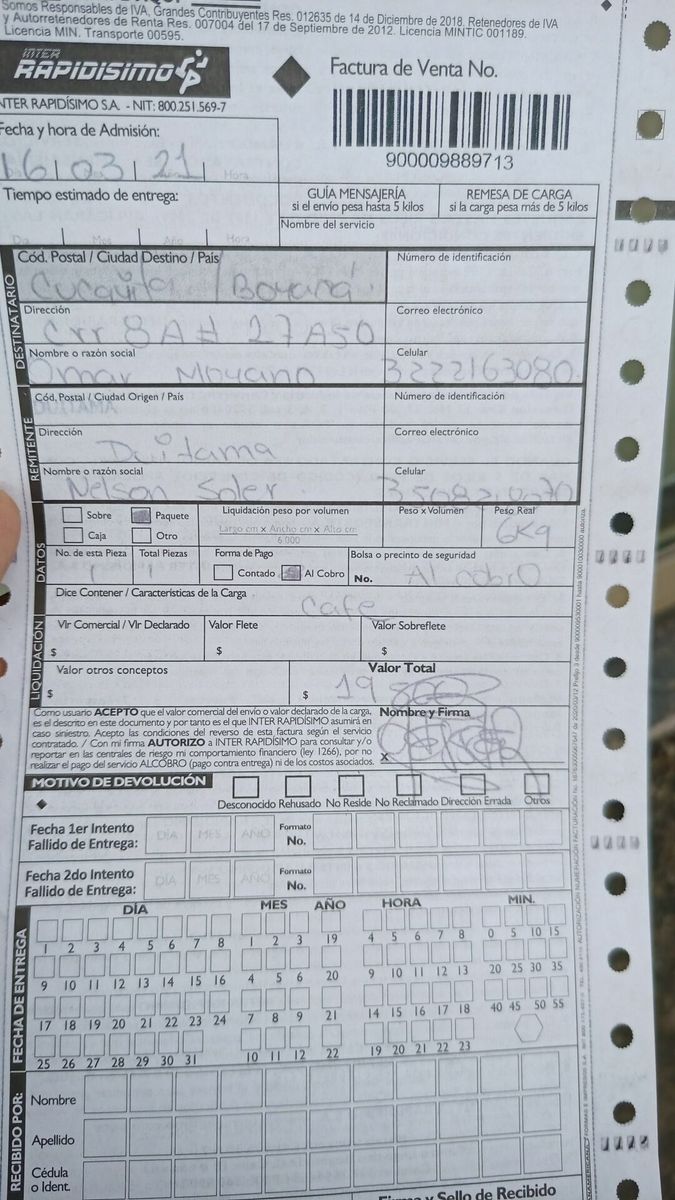 Somos Responsables de IVA, Grandes Contribuyentes Res. 012635 de 14 de Diciembre de 2018. Retenedores de IVA
y Autorretenedores de Renta Res. 007004 del 17 de Septiembre de 2012. Licencia MINTIC 001189.
Licencia MIN. Transporte 00595.
INTER
RAPIDISIMO
Factura de Venta No.
INTER RAPIDÍSIMO S.A. - NIT: 800.251.569-7
900009889713
Fecha y hora de Admisión:
16 03 21 Hora
Tiempo estimado de entrega:
Día Mes Año Hora
GUÍA MENSAJERÍA
si el envío pesa hasta 5 kilos
REMESA DE CARGA
si la carga pesa más de 5 kilos
Nombre del servicio
DESTINATARIO
Cód. Postal / Ciudad Destino / País
Número de identificación
Cucaita / Boyacá
Dirección
Correo electrónico
Crr 8A # 27A50
Nombre o razón social
Celular
Omar Moyano 3222163080
REMITENTE
Cód. Postal / Ciudad Origen / País
Número de identificación
DUITAMA
Dirección
Correo electrónico
Duitama
Nombre o razón social
Celular
Nelson Soler
DATOS
Sobre Paquete
Caja Otro
Liquidación peso por volumen
Largo cm x Ancho cm x Alto cm
6.000
Peso x Volumen
Peso Real
6Kg
No. de esta Pieza
Total Piezas
1 1
Forma de Pago
Contado Al Cobro
Bolsa o precinto de seguridad
No. Al cobro
Dice Contener / Características de la Carga
Cafe
LIQUIDACIÓN
Vlr Comercial / Vlr Declarado
Valor Flete
Valor Sobreflete
$ $ $
Valor otros conceptos
Valor Total
$ $ 19 800
Como usuario ACEPTO que el valor comercial del envío o valor declarado de la carga,
es el descrito en este documento y por tanto es el que INTER RAPIDÍSIMO asumirá en
caso siniestro. Acepto las condiciones del reverso de esta factura según el servicio
contratado. / Con mi firma AUTORIZO a INTER RAPIDÍSIMO para consultar y/o
reportar en las centrales de riesgo mi comportamiento financiero (ley 1266), por no
realizar el pago del servicio ALCOBRO (pago contra entrega) ni de los costos asociados.
Nombre y Firma
X
MOTIVO DE DEVOLUCIÓN
Desconocido Rehusado No Reside No Reclamado Dirección Errada Otros
Fecha 1er Intento
Fallido de Entrega:
DÍA MES AÑO
Formato
No.
Fecha 2do Intento
Fallido de Entrega:
DÍA MES AÑO
Formato
No.
FECHA DE ENTREGA
DÍA MES AÑO HORA MIN.
1 2 3 4 5 6 7 8 1 2 3 19 4 5 6 7 8 0 5 10 15
9 10 11 12 13 14 15 16 4 5 6 20 9 10 11 12 13 20 25 30 35
17 18 19 20 21 22 23 24 7 8 9 21 14 15 16 17 18 40 45 50 55
25 26 27 28 29 30 31 10 11 12 22 19 20 21 22 23
RECIBIDO POR:
Nombre
Apellido
Cédula
o Ident.
Firma y Sello de Recibido